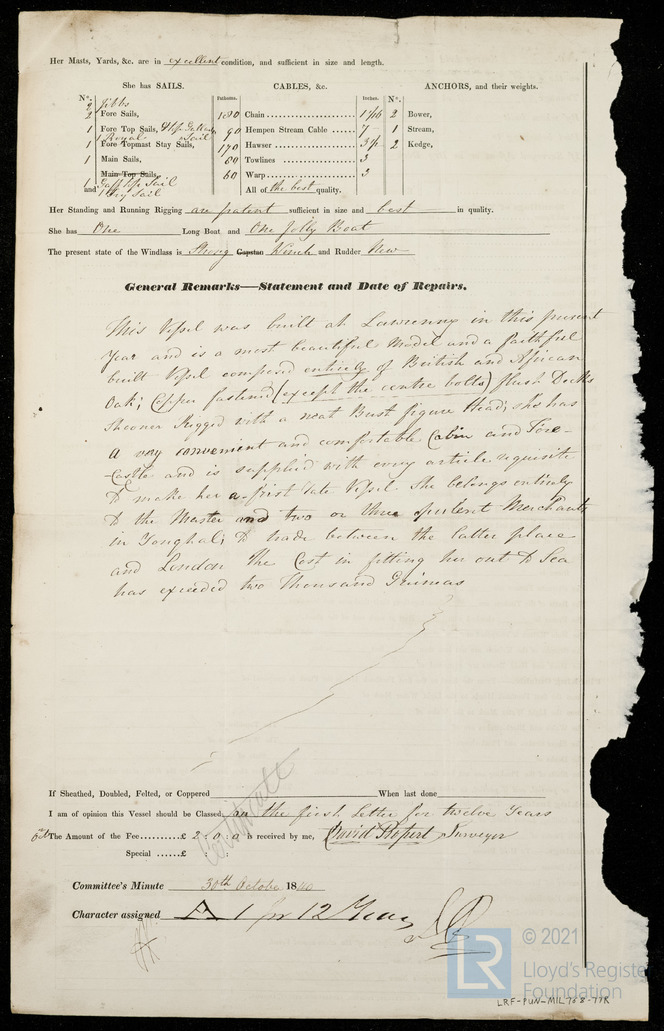 Her Masts, Yards, &c. are in excellent condition, and sufficient in size and length.
She has SAILS. CABLES, &c. ANCHORS, and their weights.
N°. Fathoms. Inches. N°.
2 Jibbs
2 Fore Sails, 180 Chain 1 1/16 2 Bower,
1 Fore Top Sails, 90 Hempen Stream Cable 7 1 Stream,
1 Royal Sail
1 Fore Topmast Stay Sails, 170 Hawser 2 Kedge,
1 Main Sails, 80 Towlines 3
Main Top Sails, 60 Warp 3
1 Gaff Top Sail
and 1 Try Sail All of the best quality.
Her Standing and Running Rigging are patent sufficient in size and best in quality.
She has One Long Boat and One Jolly Boat
The present state of the Windlass is Strong Capstan Winch and Rudder New
General Remarks—Statement and Date of Repairs.
This Vessel was built at Lawrenny in this present
Year and is a most beautiful Model and a faithful
built Vessel composed entirely of British and African
Oak; Copper fastened (except the centre bolts) flush Decks
Shooner Rigged with a neat Bust figure Head; she has
a very convenient and comfortable Cabin and Fore-
-Castle and is supplied with every article requisite
to make her a first rate Vessel. She belongs entirely
to the Master and two or three opulent Merchants
in Youghal; to trade between the latter place
and London the Cost in fitting her out to Sea
has exceeded two thousand Guineas
If Sheathed, Doubled, Felted, or Coppered When last done
I am of opinion this Vessel should be Classed, in the first Letter for twelve Years
The Amount of the Fee £ 2 : 0 : 0 is received by me, David Surveyor
Special £ : :
Committee's Minute 30th October 1840
Character assigned A 1 for 12 Years
© 2021
LR
Lloyd's Register
Foundation
LRF-PUN-MIL758-77R